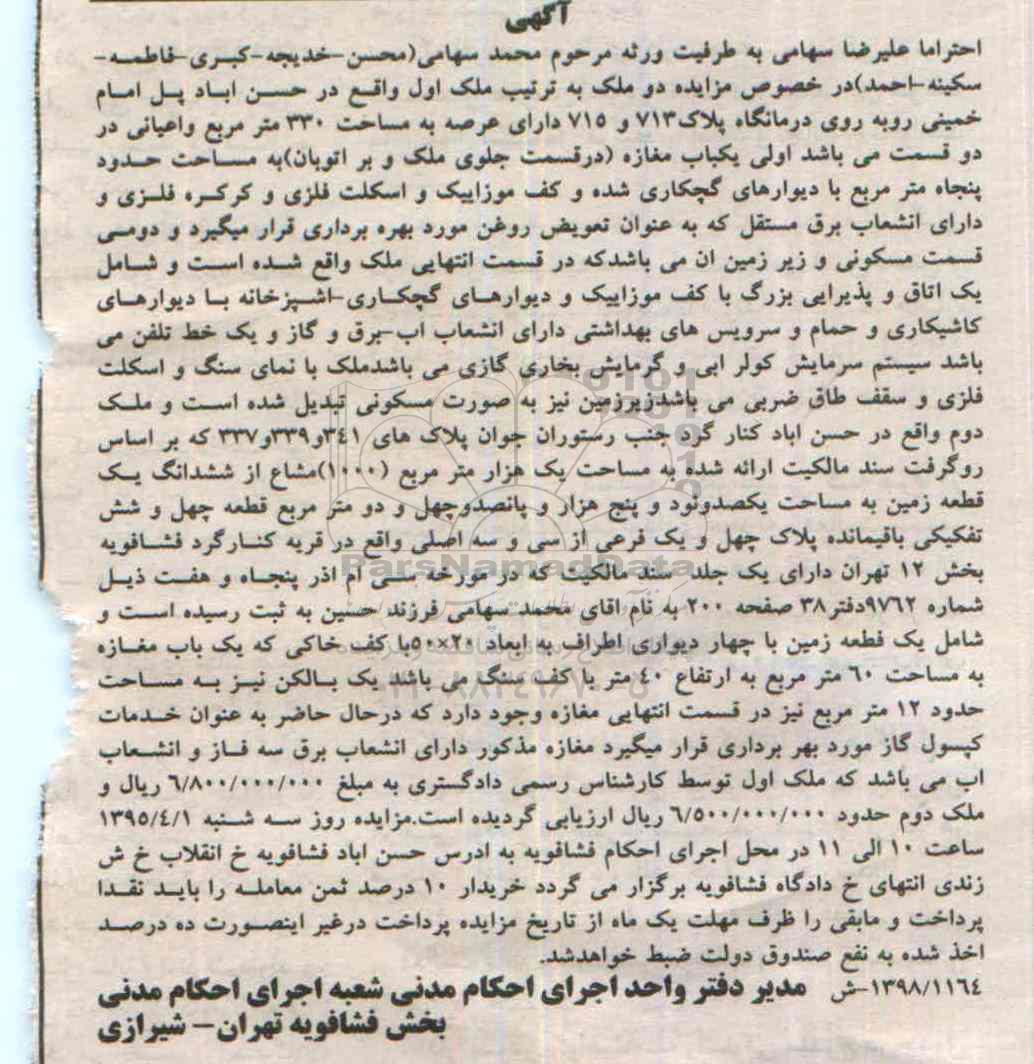 آگهی
احتراما علیرضا سهامی به طرفیت ورثه مرحوم محمد سهامی(محسن-خدیجه-کبری-فاطمه-
سکینه-احمد)در خصوص مزایده دو ملک به ترتیب ملک اول واقع در حسن اباد پل امام
خمینی روبه روی درمانگاه پلاک۷۱۳ و ۷۱۵ دارای عرصه به مساحت ۳۳۰ متر مربع واعیانی در
دو قسمت می باشد اولی یکباب مغازه (درقسمت جلوی ملک و بر اتوبان)به مساحت حدود
پنجاه متر مربع با دیوارهای گچکاری شده و کف موزاییک و اسکلت فلزی و کرکره فلزی و
دارای انشعاب برق مستقل که به عنوان تعویض روغن مورد بهره برداری قرار میگیرد و دومی
قسمت مسکونی و زیر زمین ان می باشدکه در قسمت انتهایی ملک واقع شده است و شامل
یک اتاق و پذیرایی بزرگ با کف موزاییک و دیوارهای گچکاری-اشپزخانه با دیوارهای
کاشیکاری و حمام و سرویس های بهداشتی دارای انشعاب اب-برق و گاز و یک خط تلفن می
باشد سیستم سرمایش کولر ابی و گرمایش بخاری گازی می باشدملک با نمای سنگ و اسکلت
فلزی و سقف طاق ضربی می باشدزیرزمین نیز به صورت مسکونی تبدیل شده است و ملک
دوم واقع در حسن اباد کنار گرد جنب رستوران جوان پلاک های ۳٤۱و۳۳۹و۳۳۷ که بر اساس
روگرفت سند مالکیت ارائه شده به مساحت یک هزار متر مربع (۱۰۰۰)مشاع از ششدانگ یک
قطعه زمین به مساحت یکصدونود و پنج هزار و پانصدوچهل و دو متر مربع قطعه چهل و شش
تفکیکی باقیمانده پلاک چهل و یک فرعی از سی و سه اصلی واقع در قریه کنارگرد فشافویه
بخش ۱۲ تهران دارای یک جلد سند مالکیت که در مورخه سی ام اذر پنجاه و هفت ذیل
شماره ۹۷٦۲دفتر۳۸ صفحه ۲۰۰ به نام اقای محمد سهامی فرزند حسین به ثبت رسیده است و
شامل یک قطعه زمین با چهار دیواری اطراف به ابعاد ۲۰×۵۰با کف خاکی که یک باب مغازه
به مساحت ٦۰ متر مربع به ارتفاع ٤۰ متر با کف سنگ می باشد یک بالکن نیز به مساحت
حدود ۱۲ متر مربع نیز در قسمت انتهایی مغازه وجود دارد که درحال حاضر به عنوان خدمات
کپسول گاز مورد بهر برداری قرار میگیرد مغازه مذکور دارای انشعاب برق سه فاز و انشعاب
اب می باشد که ملک اول توسط کارشناس رسمی دادگستری به مبلغ ٦/۸۰۰/۰۰۰/۰۰۰ ریال و
ملک دوم حدود ٦/۵۰۰/۰۰۰/۰۰۰ ریال ارزیابی گردیده است.مزایده روز سه شنبه ۱۳۹۵/٤/۱
ساعت ۱۰ الی ۱۱ در محل اجرای احکام فشافویه به ادرس حسن اباد فشافویه خ انقلاب خ ش
زندی انتهای خ دادگاه فشافویه برگزار می گردد خریدار ۱۰ درصد ثمن معامله را باید نقدا
پرداخت و مابقی را ظرف مهلت یک ماه از تاریخ مزایده پرداخت درغیر اینصورت ده درصد
اخذ شده به نفع صندوق دولت ضبط خواهدشد.
۱۳۹۸/۱۱٦٤-ش مدیر دفتر واحد اجرای احکام مدنی شعبه اجرای احکام مدنی
بخش فشافویه تهران- شیرازی
ParsNamadData